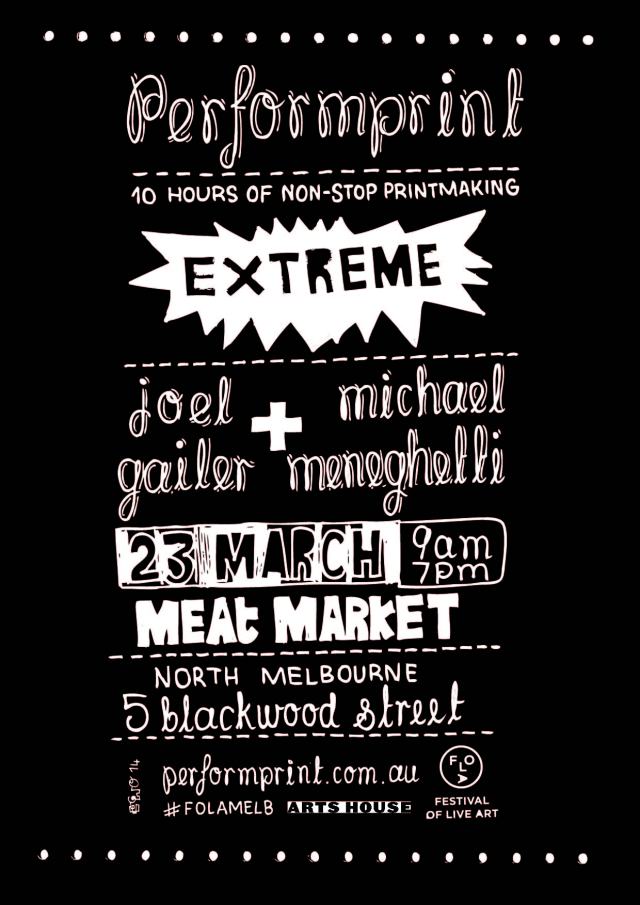 Performprint
10 HOURS OF NON-STOP PRINTMAKING
EXTREME
joel gailer + michael meneghelli
23 MARCH 9am 7pm
MEAt MARKET
NORTH MELBOURNE
5 blackwood street
performprint.com.au
#FOLAMELB ARTS HOUSE
FOLA
FESTIVAL
OF LIVE ART